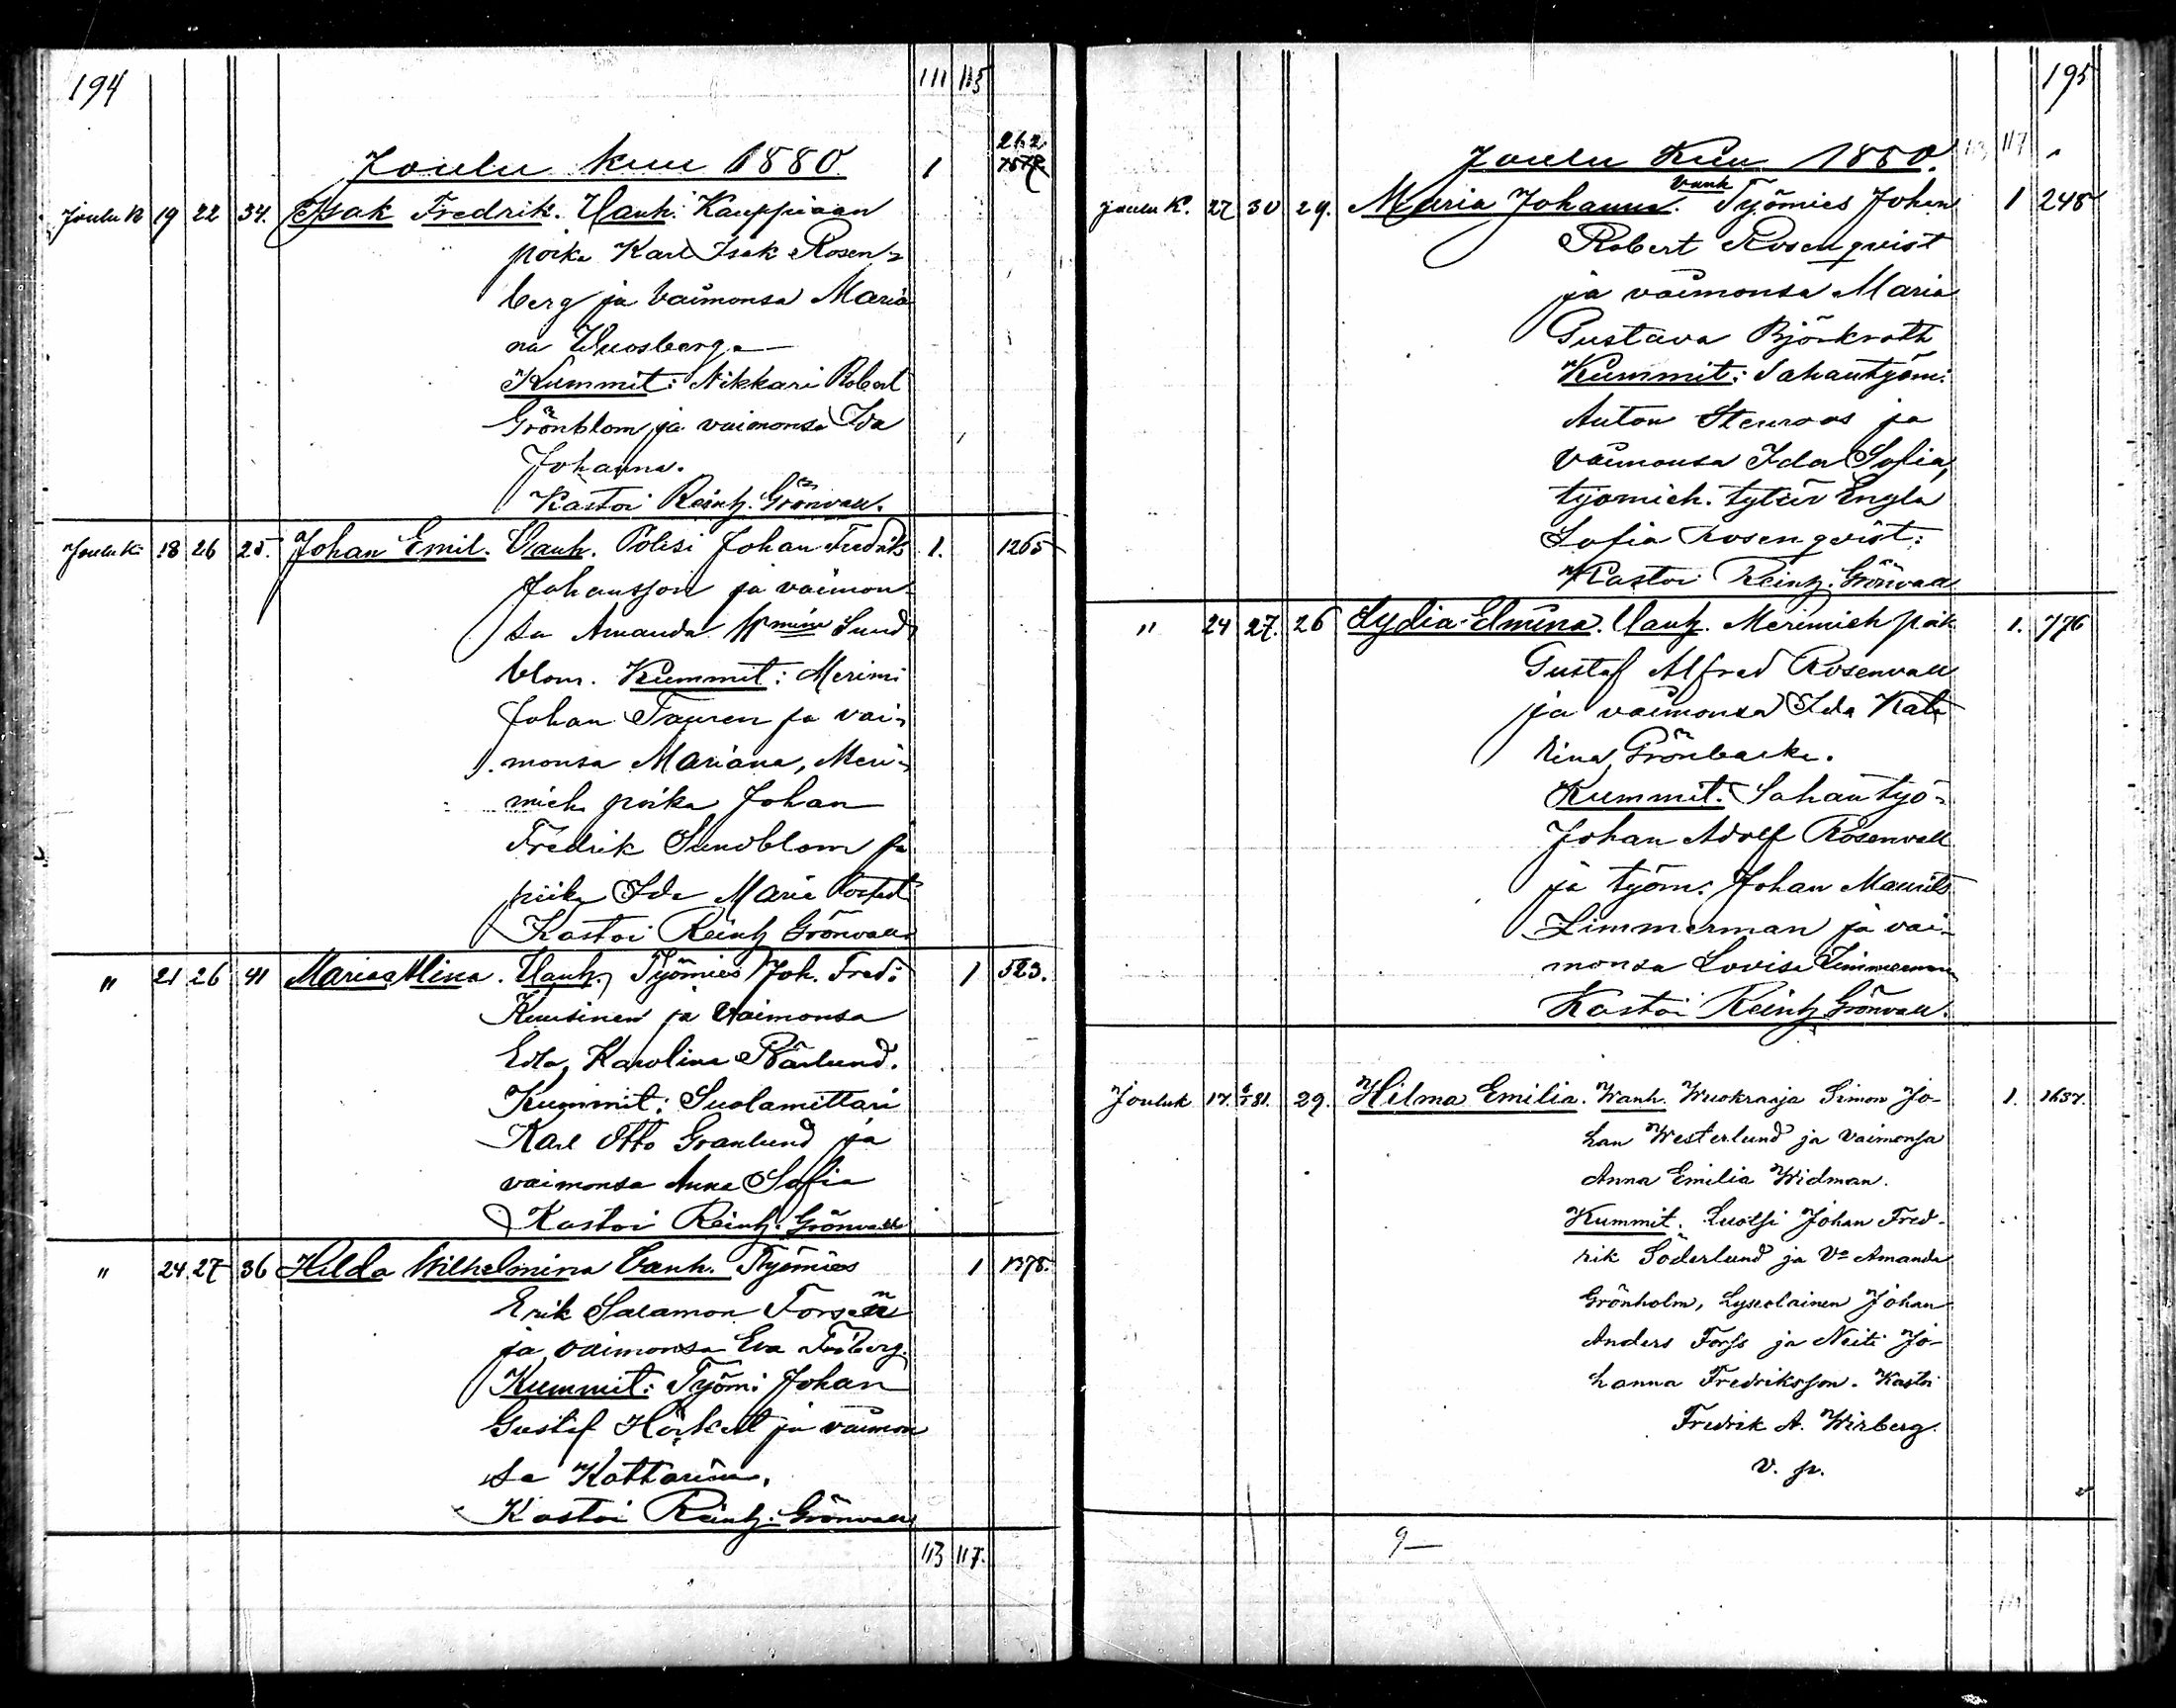 194
111 115
Joulu kuu 1880. 1 262
Joulu K 19 22 34. Isak Fredrik. Vanh: Kauppiaan
poika Karl Isak Rosen-
berg ja vaimonsa Maria
na
Kummit: Nikkari Robert
Grönblom ja vaimonsa Ida
Johanna.
Kastoi Reinh. Grönvall.
Joulu K: 18 26 25. Johan Emil. Vanh. Polisi Johan Fredrik 1. 1265
Johansson ja vaimon-
sa Amanda Wmina Sund
blom. Kummit: Merimi
Johan Tauren ja vai-
monsa Mariana, Meri-
mieh. poika Johan
Fredrik Sundblom ja
piika Ida Maria
Kastoi Reinh Grönvall
" 21 26 41 Maria Alina. Vanh. Työmies Joh. Fred: 1 523.
Kuusinen ja Vaimonsa
Edla Karolina Bärlund.
Kummit: Suolamittari
Karl Otto Granlund ja
vaimonsa Anna Sofia
Kastoi Reinh. Grönvall
" 24 27 36 Hilda Wilhelmina Vanh. Työmies 1 1378.
Erik Salamon Forsén
ja vaimonsa Eva Friberg.
Kummit: Työmi Johan
Gustaf ja vaimon
sa Kattarina.
Kastoi Reinh. Grönvall
113 117.
195
Joulu Kuu 1880. 113 117
Joulu K. 27 30 29. Maria Johanna. Vanh Työmies Johan 1 248
Robert Rosenqvist
ja vaimonsa Maria
Gustava Björkroth
Kummit: Sahantyömi.
Anton Stenroos ja
Vaimonsa Ida Sofia,
työmieh. tytär Engla
Sofia Rosenqvist:
Kastoi Reinh. Grönvall
" 24 27. 26 Lydia Elmina. Vanh. Merimieh poik 1. 776
Gustaf Alfred Rosenvall
ja vaimonsa Ida Kata
riina Grönbacka.
Kummit. Sahantyö-
Johan Adolf Rosenvall
ja työm: Johan Maurits
Zimmerman ja vai-
monsa Lovisa Zimmerman
Kastoi Reinh Grönvall.
Jouluk 17. 6/1 81. 29. Hilma Emilia. Wanh. Wuokraaja Simon Jo- 1. 1637.
han Westerlund ja Vaimonsa
Anna Emilia Widman.
Kummit. Luotsi Johan Fred-
rik Söderlund ja Vo Amanda
Grönholm, Lyseolainen Johan
Anders Forss ja Neiti Jo-
hanna Fredriksson. Kastoi
Fredrik A. Wirberg.
v. p.
9